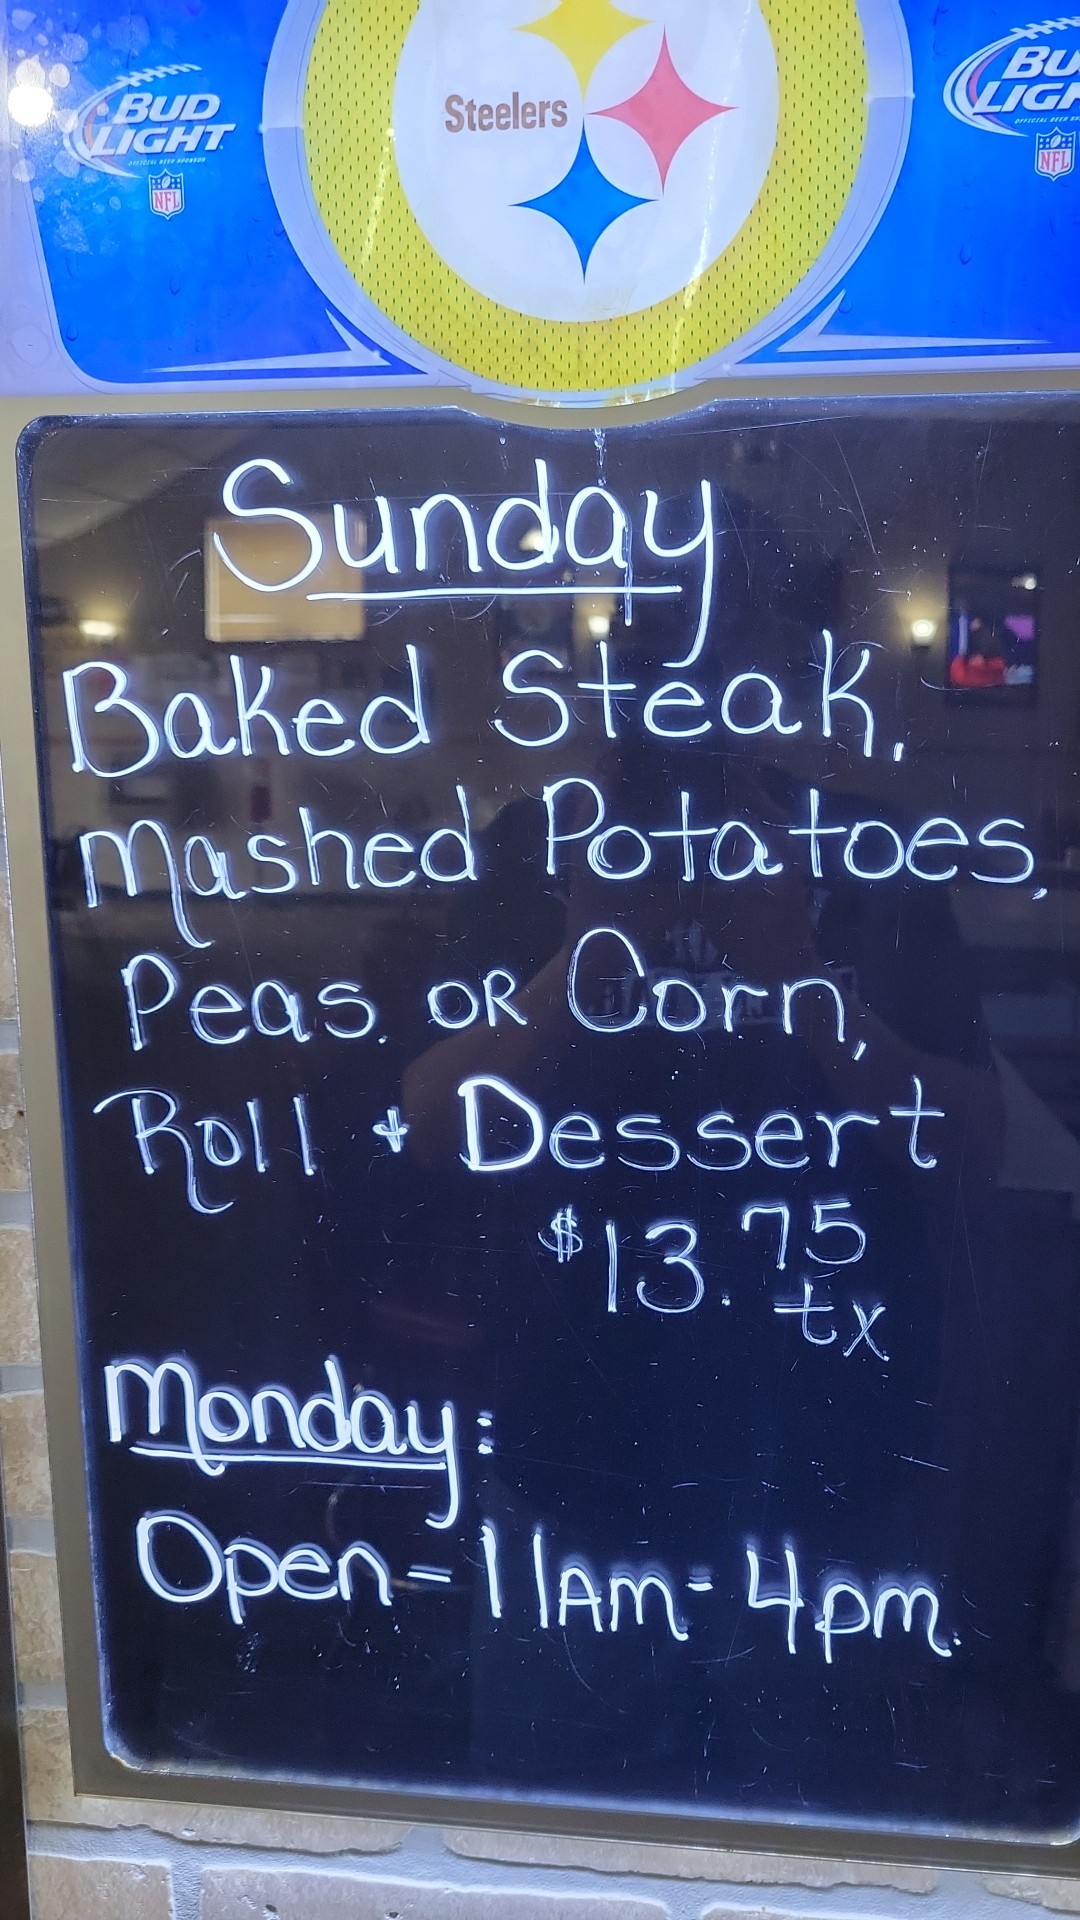 BUD LIGHT
OFFICIAL BEER SPONSOR
NFL
Steelers
BU
LIGH
OFFICIAL BEER
NFL
Sunday
Baked Steak,
Mashed Potatoes,
Peas. OR Corn,
Roll + Dessert
$13.75
tx
Monday:
Open - 11AM - 4pm.